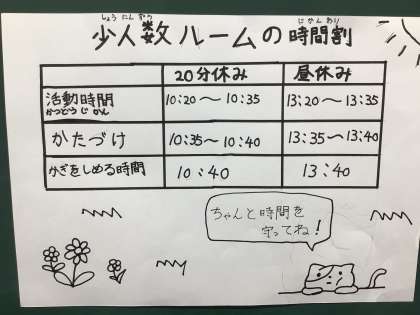 しょうにんずう じかんわり
少人数ルームの時間割
20分休み 昼休み
活動時間 10:20〜10:35 13:20〜13:35
かつどうじかん
かたづけ 10:35〜10:40 13:35〜13:40
かぎをしめる時間 10:40 13:40
ちゃんと時間を
守ってね!